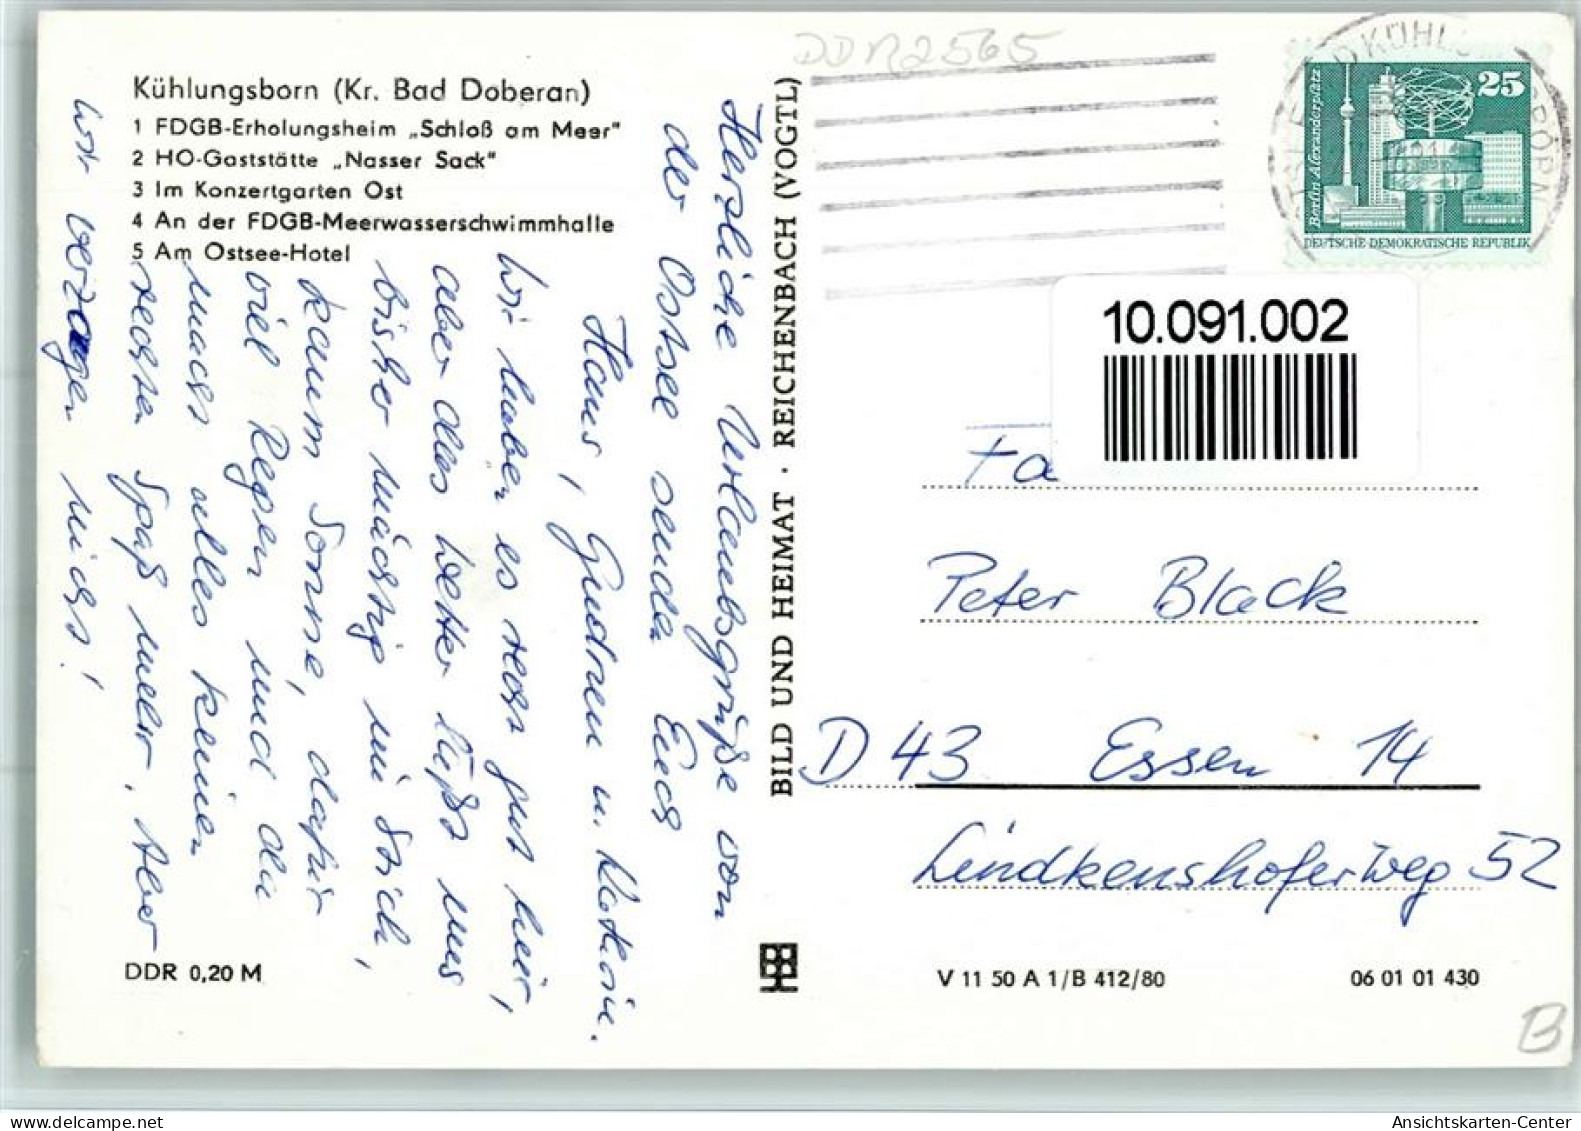 DDR 2565
Kühlungsborn (Kr. Bad Doberan)
1 FDGB-Erholungsheim „Schloß am Meer"
2 HO-Gaststätte „Nasser Sack"
3 Im Konzertgarten Ost
4 An der FDGB-Meerwasserschwimmhalle
5 Am Ostsee-Hotel
Herzliche Urlaubsgrüße von
der Ostsee senden Euch
Haus, Gudrun u. Katrin.
Wir haben es recht gut hier,
aber das Wetter läßt uns
bisher mächtig im Stich,
kaum Sonne, dafür
viel Regen und da
macht alles keinen
rechten Spaß mehr. Aber
wir verzagen nicht!
BILD UND HEIMAT · REICHENBACH (VOGTL)
25
Berlin, Alexanderplatz
DEUTSCHE DEMOKRATISCHE REPUBLIK
10.091.002
Fa
Peter Black
D 43 Essen 14
Lindkenshoferweg 52
DDR 0,20 M
V 11 50 A 1/B 412/80
06 01 01 430
B
Ansichtskarten-Center